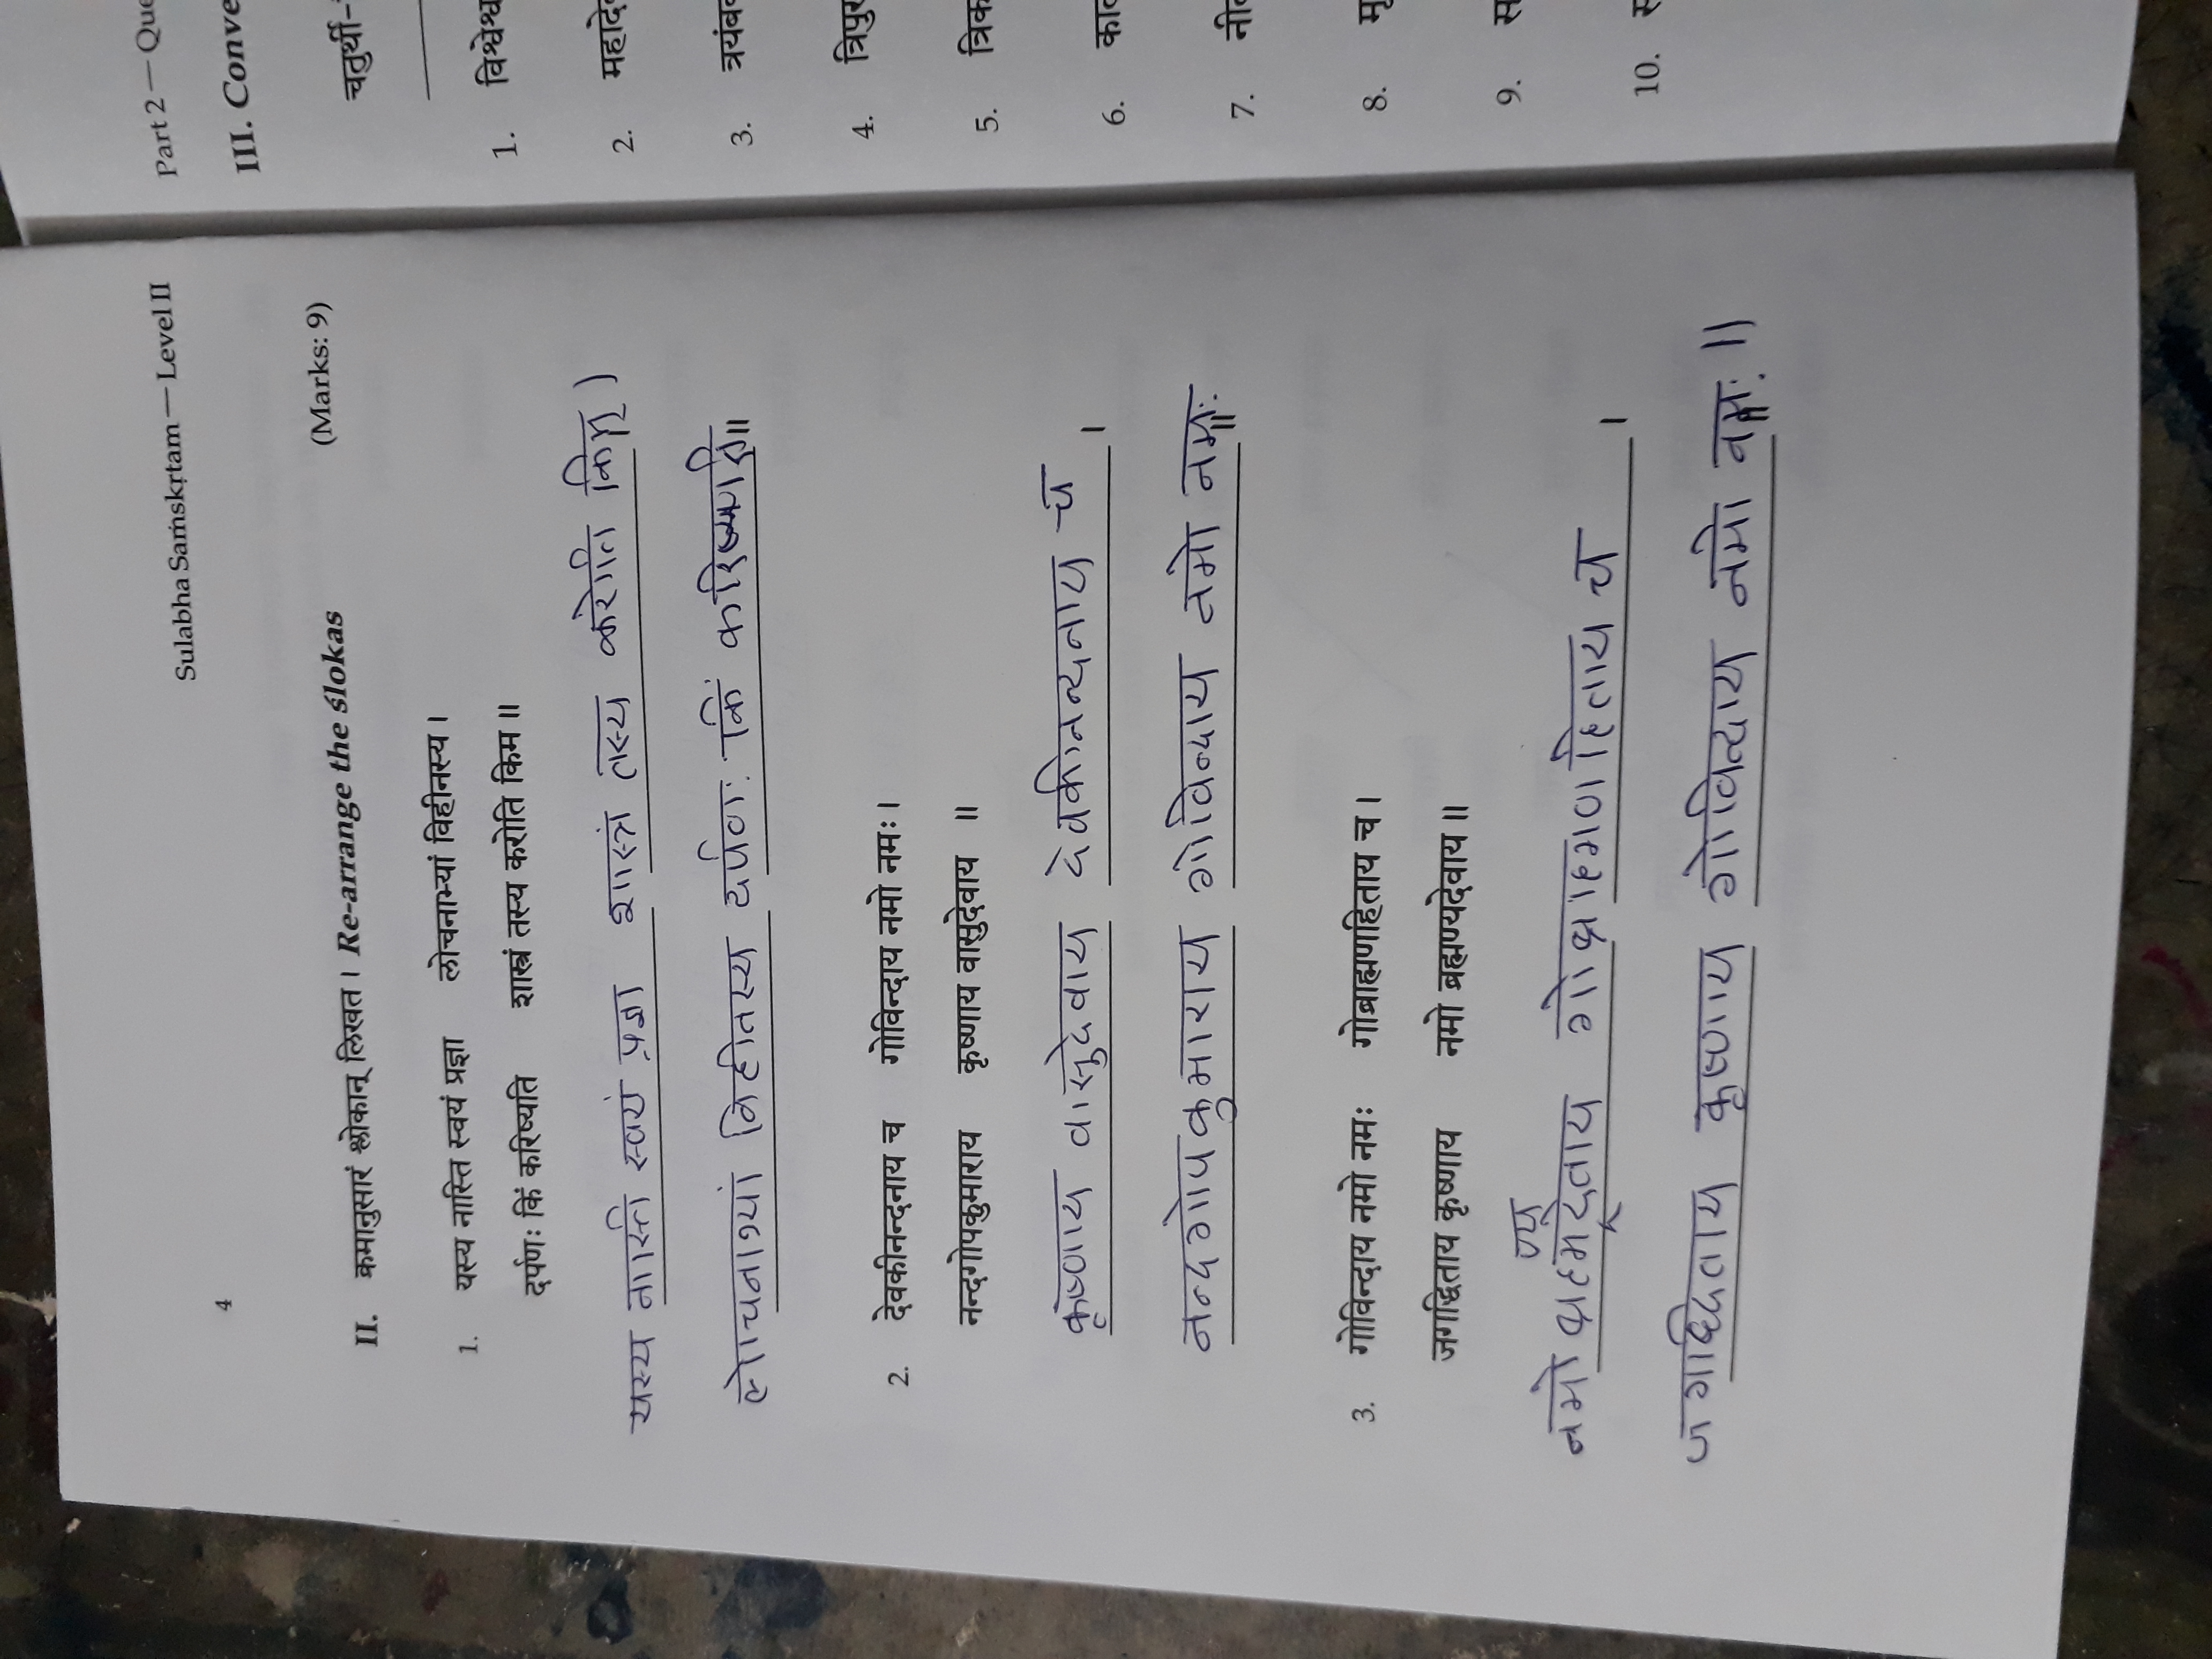 Sulabha Saṁskṛtam — Level II
4
II. क्रमानुसारं श्लोकान् लिखत। Re-arrange the ślokas (Marks: 9)
1. यस्य नास्ति स्वयं प्रज्ञा लोचनाभ्यां विहीनस्य।
दर्पणः किं करिष्यति शास्त्रं तस्य करोति किम॥
यस्य नास्ति स्वयं प्रज्ञा शास्त्रं तस्य करोति किम्।
लोचनाभ्यां विहीनस्य दर्पणः किं करिष्यति॥
2. देवकीनन्दनाय च गोविन्दाय नमो नमः।
नन्दगोपकुमाराय कृष्णाय वासुदेवाय ॥
कृष्णाय वासुदेवाय देवकीनन्दनाय च ।
नन्दगोपकुमाराय गोविन्दाय नमो नमः॥
3. गोविन्दाय नमो नमः गोब्राह्मणहिताय च।
जगद्धिताय कृष्णाय नमो ब्रह्मण्यदेवाय॥
ण्य
नमो गोब्राह्मणहिताय च ।
जगद्धिताय कृष्णाय गोविन्दाय नमो नमः॥
Part 2 —
III.
चतुर्थी-
1.
2.
3.
4.
5.
6.
7.
8.
9.
10.